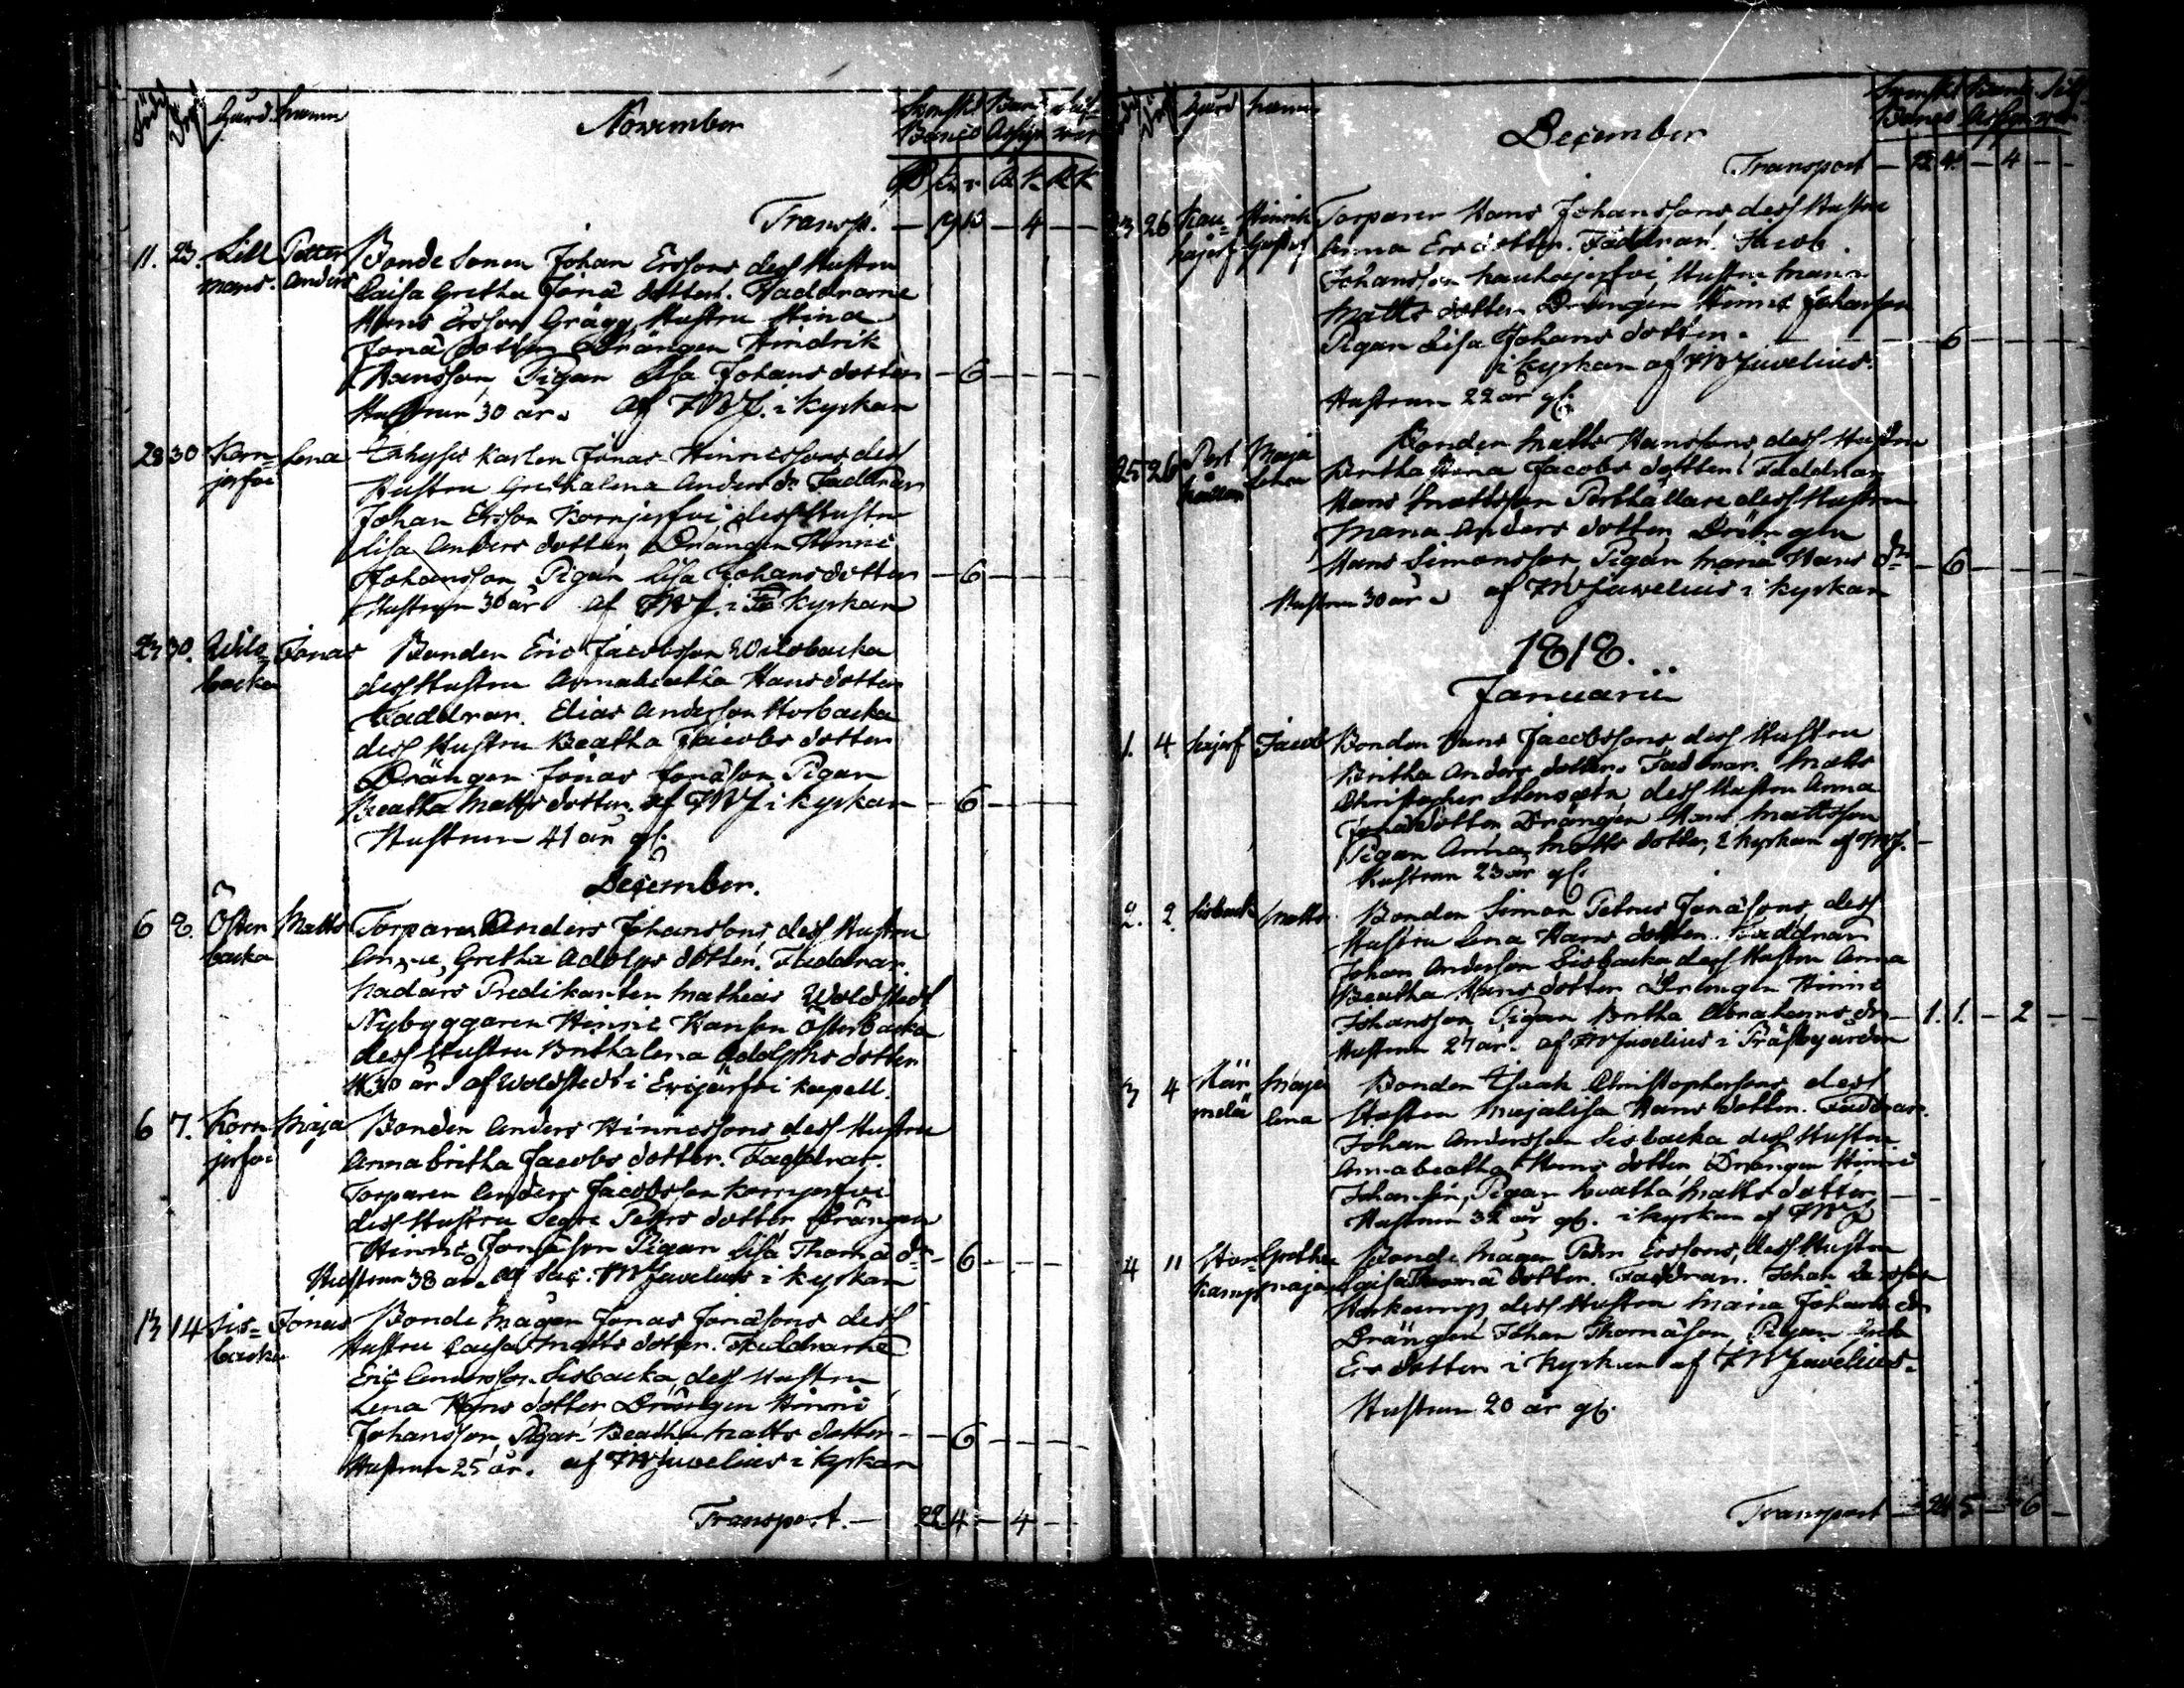 Född Döpt Gård. Namn November Svenska Banco Banco Assign. Silfver
Transp. — 19 13 — 4 — —
11. 23. Lill Petter Bonde Sonen Johan Erssons dess Hustru
mans. Anders Caisa Gretha Jonä dotter. Faddrarne
Hans Ersson Grägg, Hustru Stina
Jonä dotter Drängen Hindrik
Hansson, Pigan Lisa Johans dotter — 6 — — —
Hustrun 30 år. af FWJ. i Kyrkan
28 30 Korn= Lena Inhyses Karlen Jonas Hinricssons dess
jerfvi Hustru Grethalena Anders dr. Faddrar
Johan Ersson Kornjerfvi, dess Hustru
Lisa Anders dotter, Drängen Hinric
Johansson, Pigan Lisa Johans dotter — 6 — — —
Hustrun 30 år af FWJ. i Kyrkan
27 30. Wils= Jonas Bonden Eric Jacobsson Wilsbacka
backa dess Hustru Annabeatha Hans dotter
Faddrar. Elias Andersson Storbacka
dess Hustru Beatha Jacobs dotter
Drängen Jonas Jonäson Pigan
Beatha Matts dotter. af FWJ i kyrkan — 6 — — —
Hustrun 41 år gl.
December.
6 8. Öster Matts Torparen Anders Johanssons, dess Hustru
backa Anna Gretha Adolphs dotter. Faddrar.
Nådårs Predikanten Mathias Woldstedt
Nybyggaren Hinric Hanson Österbacka
dess Hustru Brithalena Adolphs dotter
H. 30 år. af Woldstedt i Evijärfvi kapell.
6 7. Korn Maja Bonden Anders Hinricssons dess Hustru
jerfvi Annabritha Jacobs dotter. Faddrar.
Torparen Anders Jacobsson Kornjerfvi
dess Hustru Segri Petters dotter, Drängen
Hinric Jonäson Pigan Lisa Thomä dr — 6 — — —
Hustrun 38 år. af Sac. FWJuvelius i kyrkan
13 14 Sis= Jonas Bonde Mågen Jonas Jonäsons dess
backa Hustru Caisa Matts dotter. Faddrarne
Eric Andersson Sisbacka dess Hustru
Lena Hans dotter Drängen Hinric
Johansson, Pigan Beatha Matts dotter — 6 — — —
Hustrun 25 år. af FWJuvelius i kyrkan
Transport. — 22 4 — 4 — —
Född Döpt Gård Namn December Svenska Banco Banco Assign. Silfver
Transport — 22 4. — 4 — —
23 26 Kau= Hinrik Torparen Hans Johanssons, dess Hustru
hajerf Gustaf Anna Ers dotter. Faddrar. Jacob
Johansson Kauhajerfvi, Hustru Maria
Matts dotter Drängen Hinric Johansson
Pigan Lisa Johans dotter. — — — 6 — — —
i kyrkan af FWJuvelius.
Hustrun 22 år gl.
25 26 Pert Maja Bonden Matts Hanssons, dess Hustru
hållar Lena Britha Stina Jacobs dotter. Faddrar
Hans Mattsson Perthållare dess Hustru
Maria Anders dotter, Drängen
Hans Simonsson, Pigan Maria Hans dr — 6 — — —
Hustrun 30 år. af FWJuvelius i kyrkan
1818.
Januarii
1. 4 Kajerf Jacob Bonden Hans Jacobssons, dess Hustru
Britha Anders dotter. Faddrar. Matts
Christopher Stensätn, dess Hustru Anna
Jonä dotter, Drängen Hans Mattsson
Pigan Anna Matts dotter, i kyrkan af FWJ. —
Hustrun 23 år gl.
2. 2. Sisback Matts Bonden Simon Petrus Jonäsons, dess
Hustru Lena Hans dotter. Faddrar
Johan Andersson Sisbacka dess Hustru Anna
Beatha Hans dotter Drängen Hinric
Johansson, Pigan Britha Abrahams dr — 1. 1. — 2 — —
Hustrun 27 år. af FWJuvelius i Prästgården
3 4 Här Maja Bonden Isaak Christophersons dess
mälä lena Hustru Majalisa Hans dotter. Faddrar.
Johan Andersson Sisbacka dess Hustru
Annabeatha Hans dotter Drängen Hinric
Johansson, Pigan Beatha Matts dotter — —
Hustrun 32 år gl. i kyrkan af FWJ
4 11 Stor= Gretha Bonde Mågen Pehr Erssons, dess Hustru
kamp maja Caisa Thomä dotter. Faddrar. Johan Ersson
Storkamp, dess Hustru Maria Johans dr
Drängen Johan Thomäson, Pigan
Ers dotter i kyrkan af FWJuvelius.
Hustrun 20 år gl.
Transport — 24 5 — 6 —